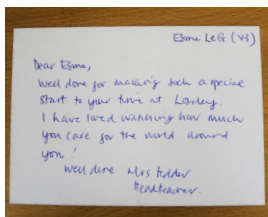 Esme LeG (Y3)
Dear Esme,
Well done for making such a special
start to your time at
I have loved watching how much
you care for the world around
you!
Well done Mrs
Headteacher.